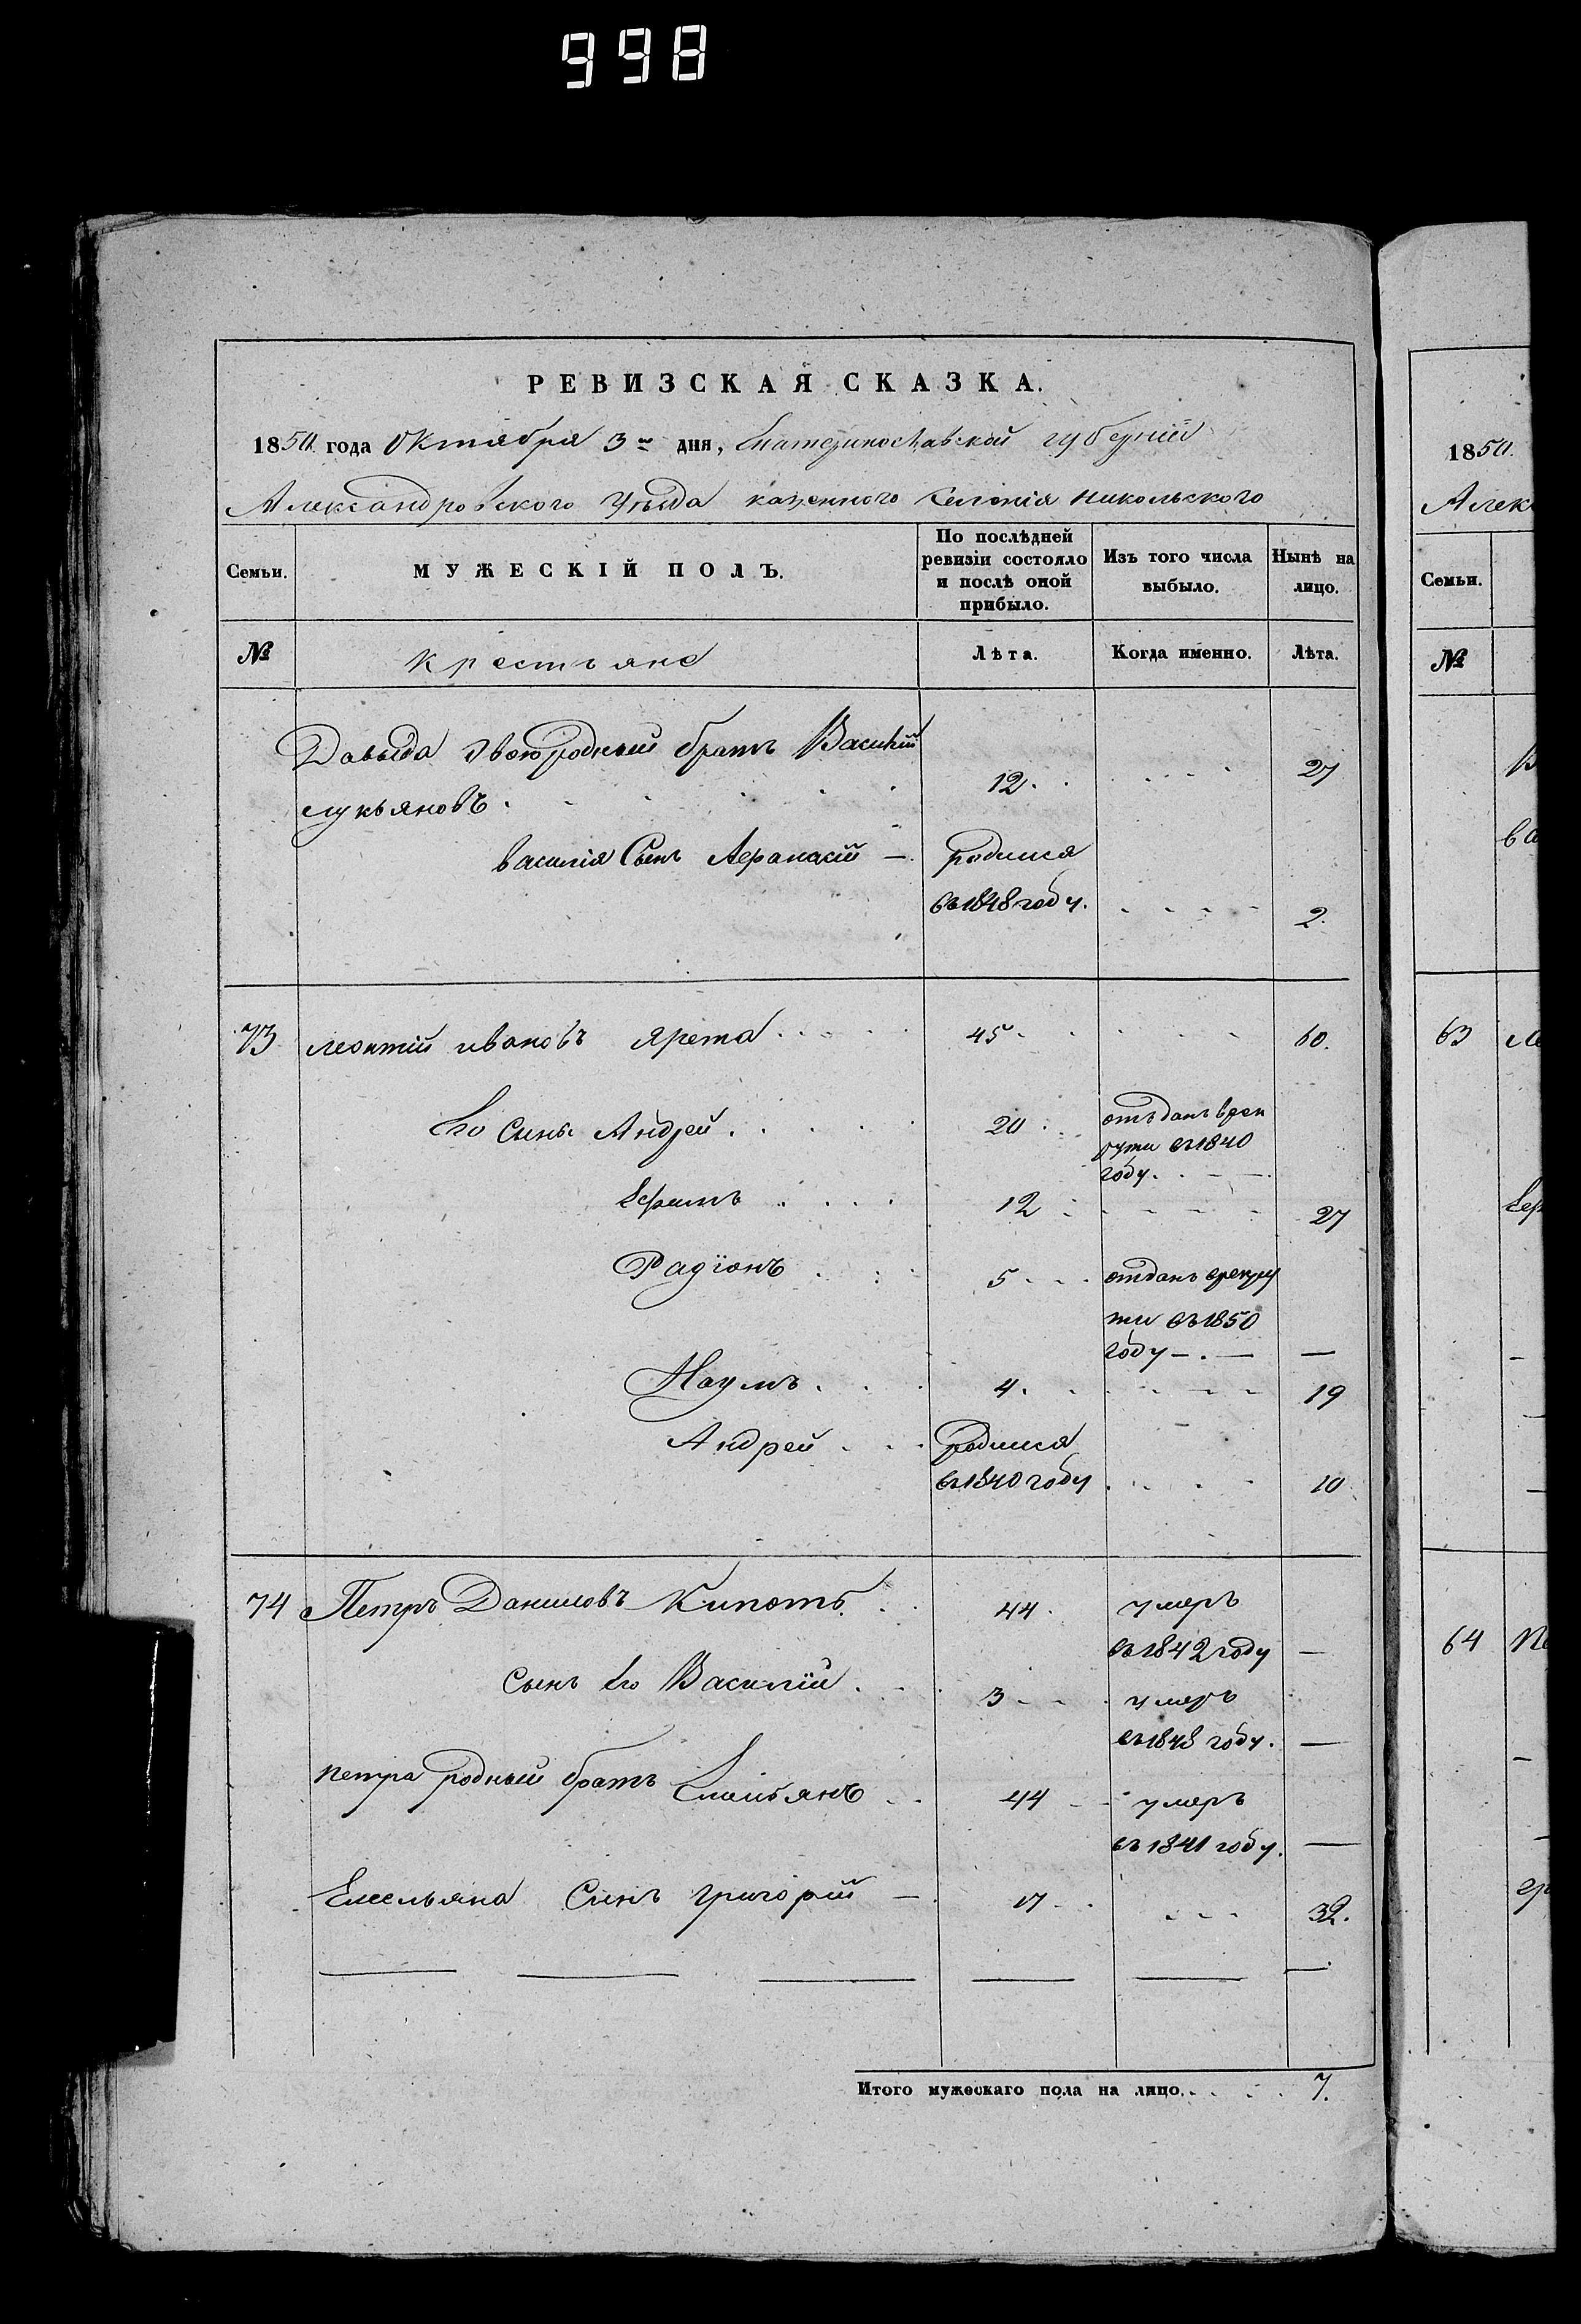 998
РЕВИЗСКАЯ СКАЗКА.
1850 года Октября 3го дня, Екатеринославской губернiи
Александровского Уѣзда казенного Селенiя Никольского
Семьи. МУЖЕСКІЙ ПОЛЪ. По послѣдней ревизіи состояло и послѣ оной прибыло. Изъ того числа выбыло. Нынѣ на лицо.
№ Крестьяне Лѣта. Когда именно. Лѣта.
Давыда двоюродный братъ Василій
лукьяновъ 12 27
василія Сынъ Афанасій — родился
въ 1848 году. 2.
73 леонтій ивановъ ярета 45 60.
Его Сынъ Андрей 20 отъданъ врек
рути въ 1840
году.
Ефимъ 12 27
Радіонъ 5 отданъ врекру
ти въ 1850
году — —
Наумъ 4 19
Андрей родился
въ 1840 году 10
74 Петръ Даниловъ Кипоть 44 умеръ
въ 1842 году —
Сынъ Его Василій 3 умеръ
въ 1848 году. —
петра родный братъ Емельянъ 44 умеръ
въ 1841 году. —
Емельяна Сынъ григорій — 17 32.
Итого мужескаго пола на лицо. 7.
1850.
Алек
Семьи.
№
В
ва
63 Ле
Еф
64 Пе
гр